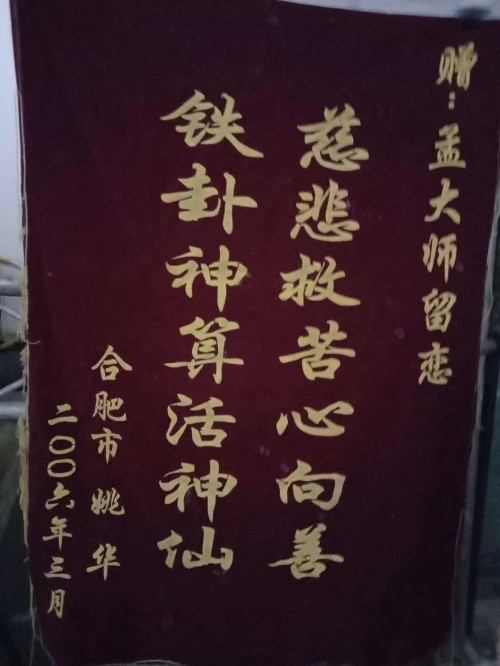 赠：孟大师留恋
慈悲救苦心向善
铁卦神算活神仙
合肥市 姚华
二〇〇六年三月